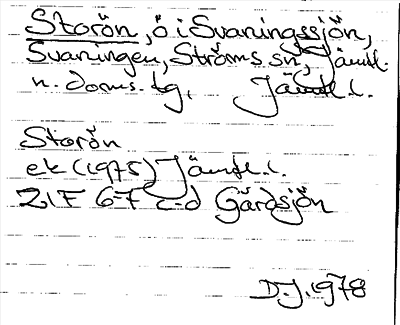 Storön, ö i Svaningssjön,
Svaningen, Ströms sn, Jämtl.
n. doms. tg, Jämtl. l.
Storön
ek (1975) Jämtl. l.
21F 6-F c-d Gärdsjön
D.J. 1978